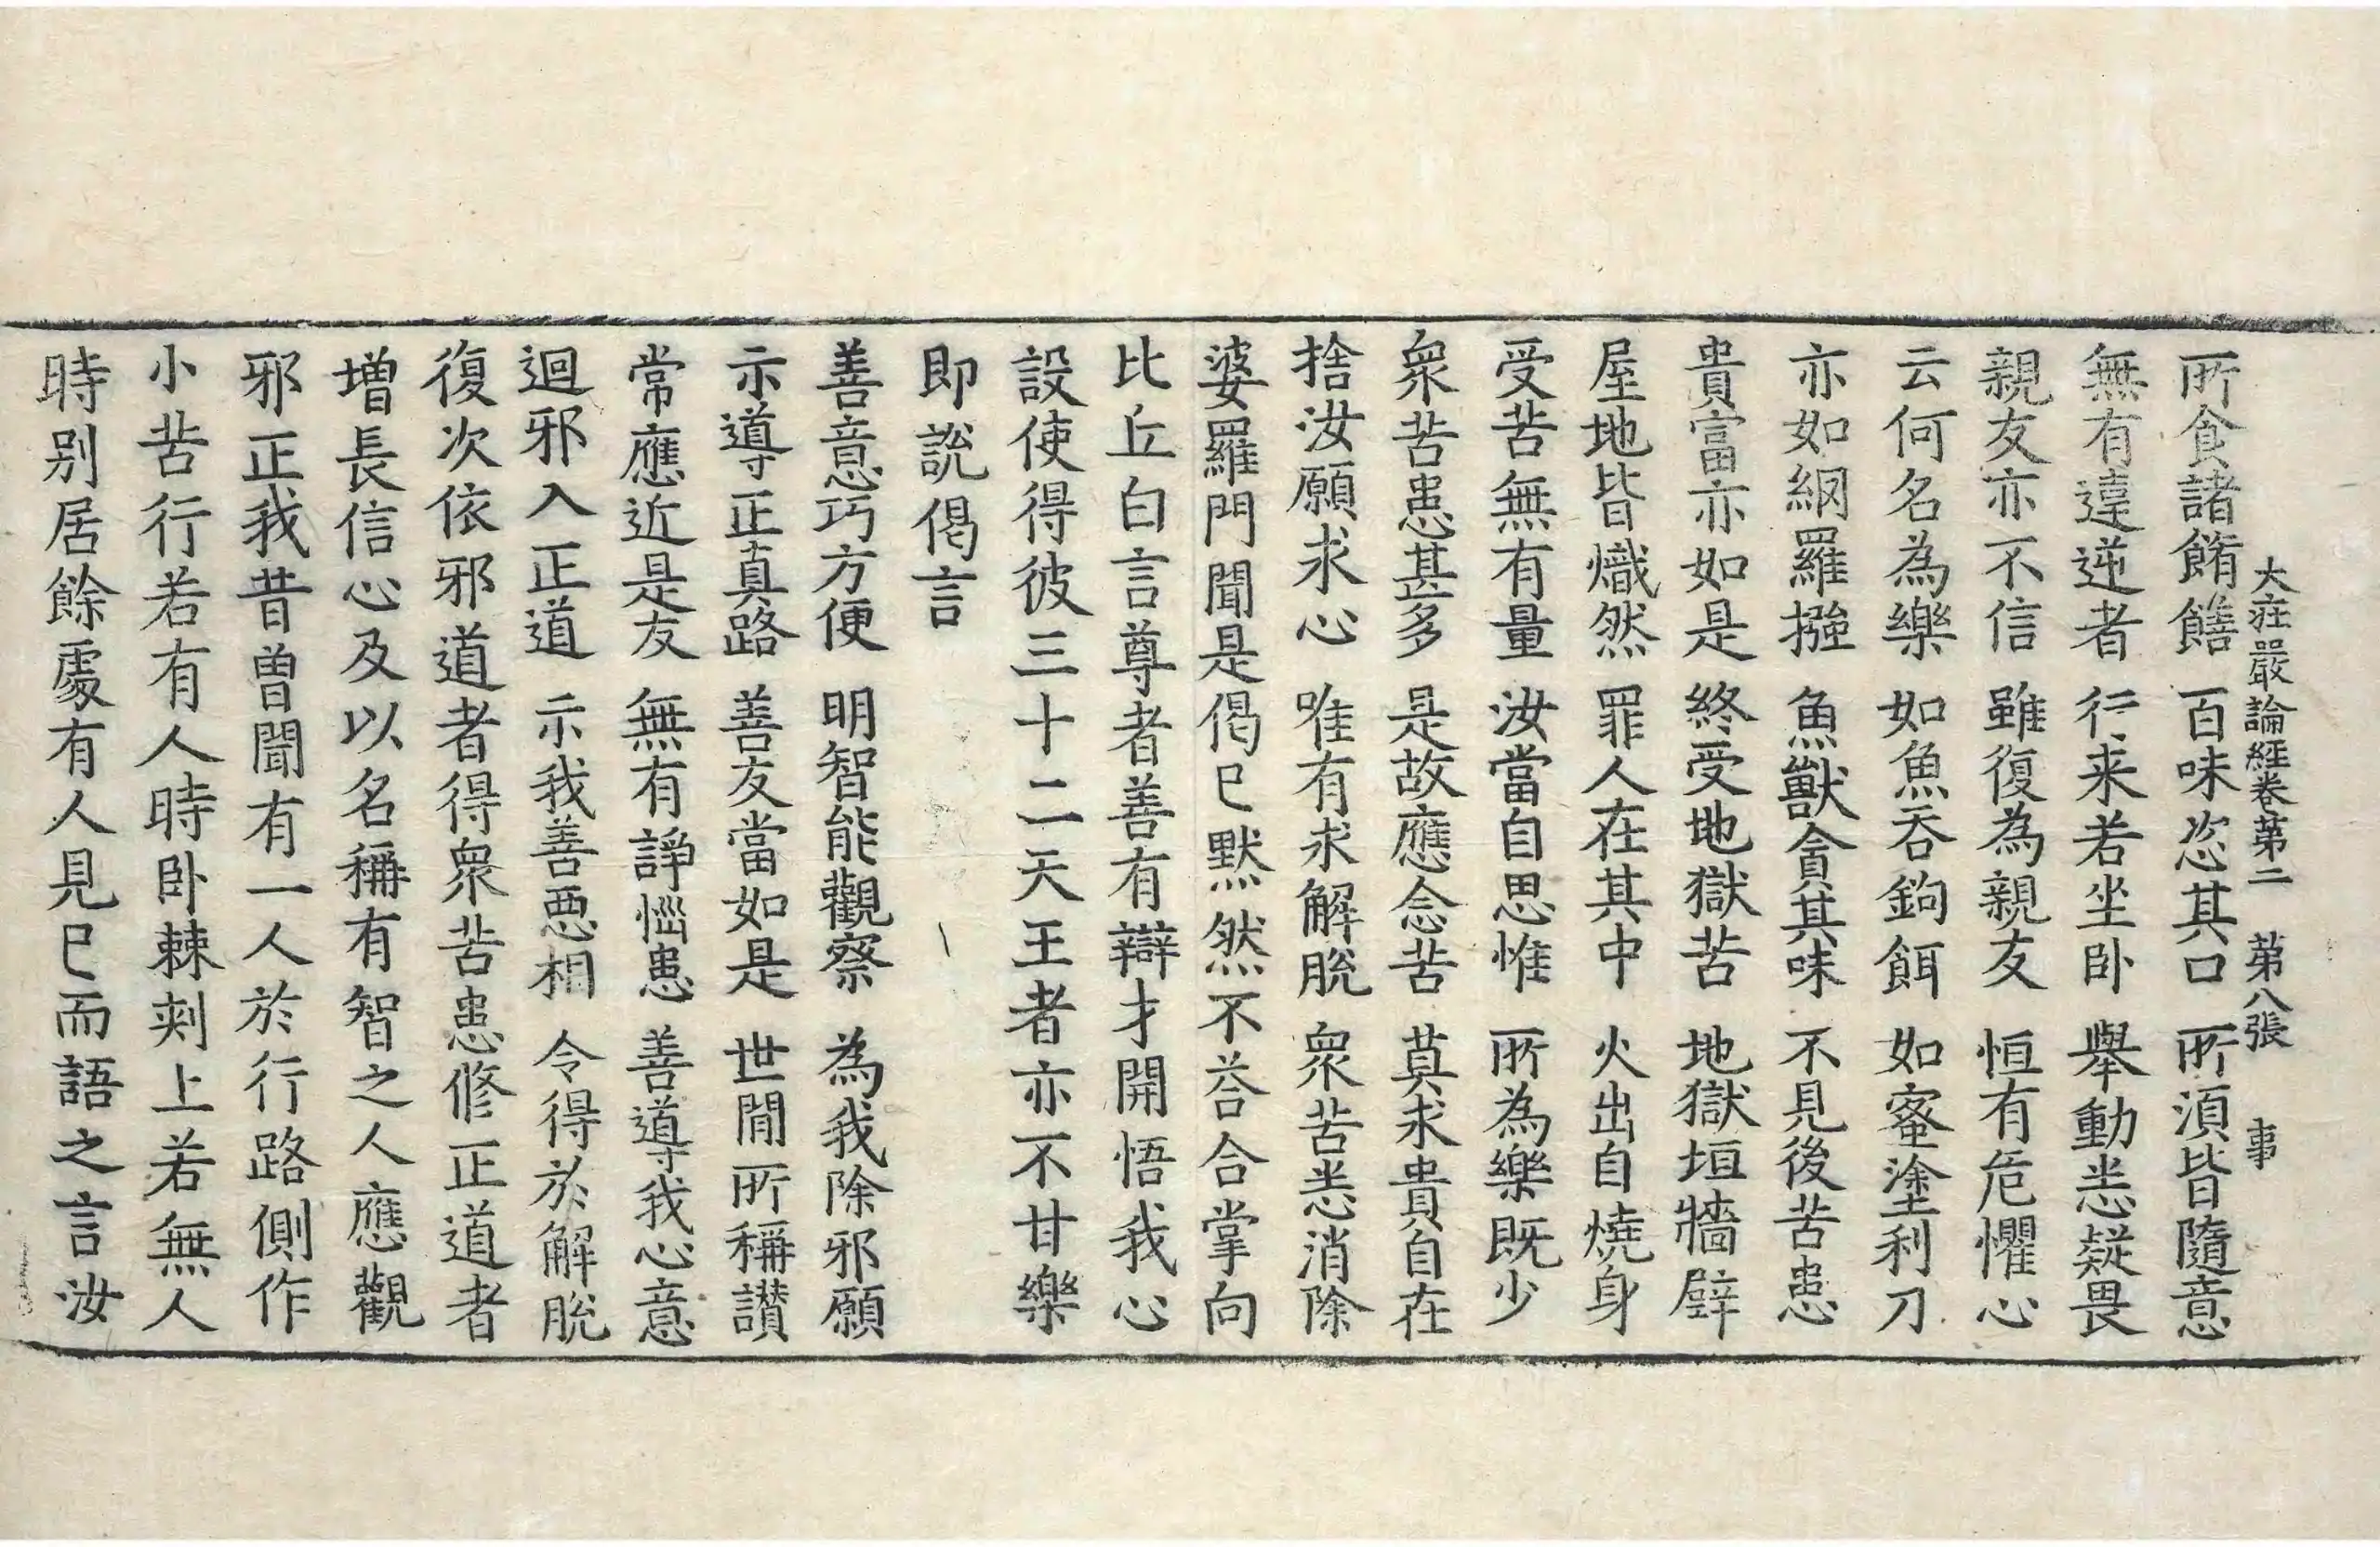 大莊嚴論經卷第二 第八張 事
所食諸餚饍 百味恣其口 所湏皆隨意
無有違逆者 行来若坐卧 舉動悉疑畏
親友亦不信 雖復為親友 恒有危懼心
云何名為樂 如魚吞鉤餌 如蜜塗利刀
亦如網羅摾 魚獸貪其味 不見後苦患
貴富亦如是 終受地獄苦 地獄垣牆壁
屋地皆熾然 罪人在其中 火出自燒身
受苦無有量 汝當自思惟 所為樂既少
衆苦患甚多 是故應念苦 莫求貴自在
捨汝願求心 唯有求解脫 衆苦悉消除
婆羅門聞是偈已默然不荅合掌向
比丘白言尊者善有辯才開悟我心
設使得彼三十二天王者亦不甘樂
即說偈言
善意巧方便 明智能觀察 為我除邪願
示導正真路 善友當如是 世閒所稱讃
常應近是友 無有諍惱患 善導我心意
迴邪入正道 示我善悪相 令得於解脫
復次依邪道者得衆苦患修正道者
增長信心及以名稱有智之人應觀
邪正我昔曾聞有一人於行路側作
小苦行若有人時卧棘刾上若無人
時别居餘處有人見已而語之言汝